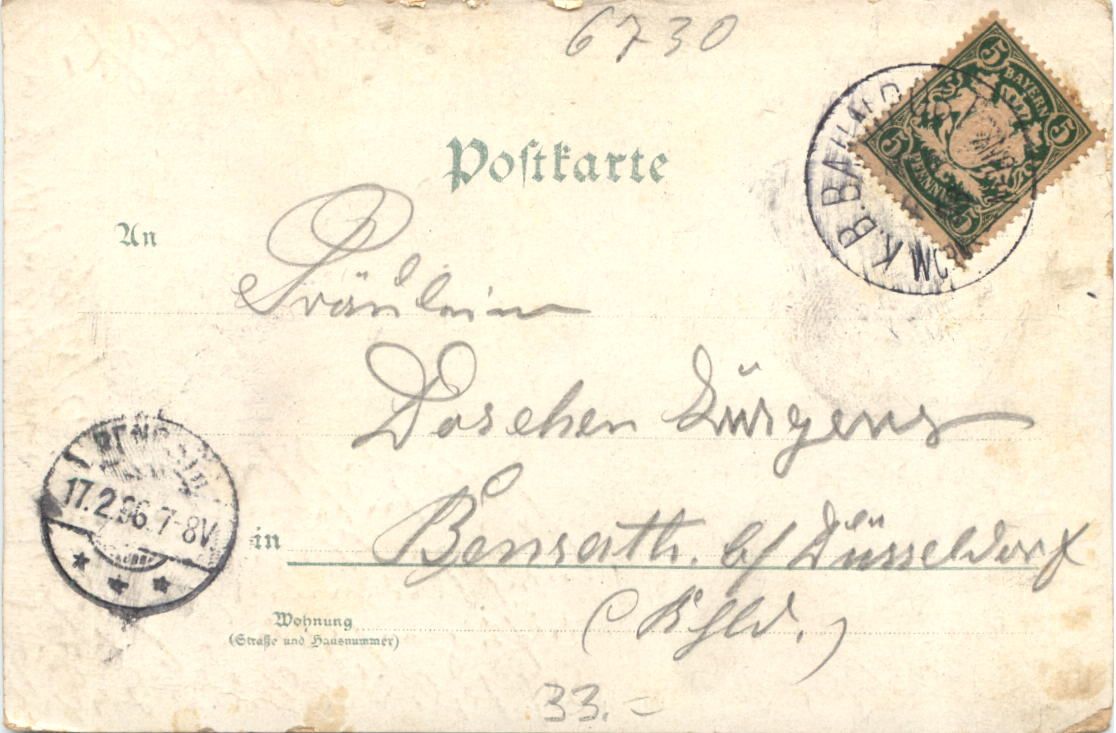 6730
5 BAYERN 5
5 PFENNIG
K.B. BAHNPOST
Postkarte
An
Fräulein
Doschen Jürgens
BENRATH
17.2.96.7-8V
in
Benrath. b/ Düsseldorf
Wohnung
(Straße und Hausnummer)
(Rhld.)
33.-